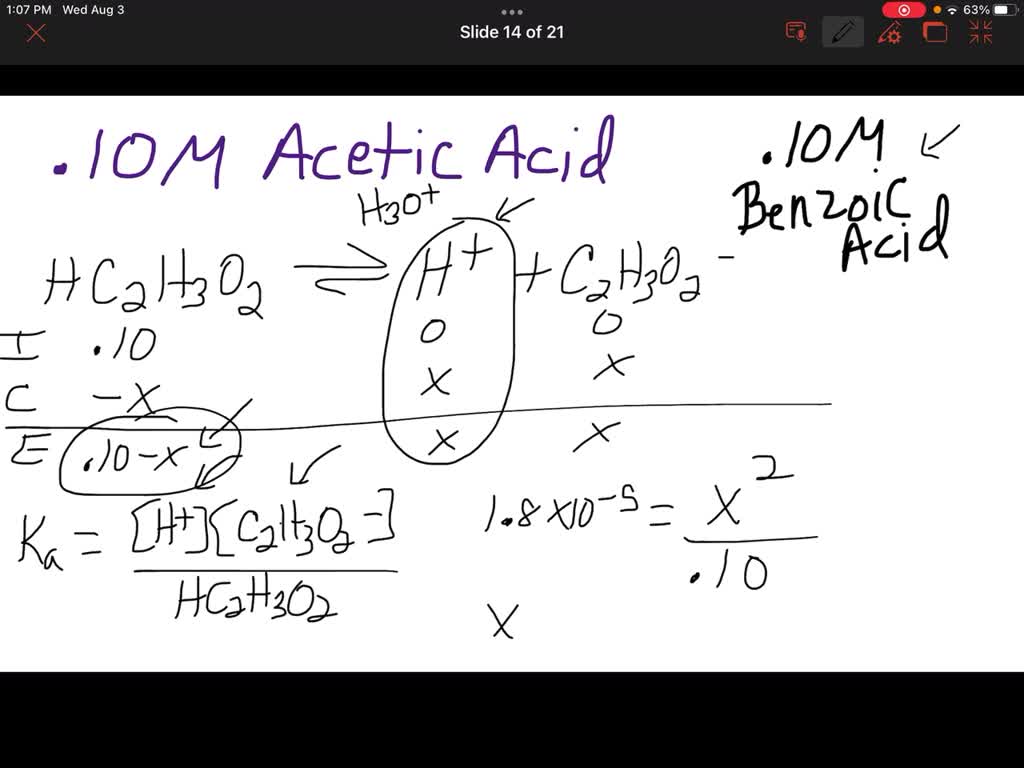 1:07 PM Wed Aug 3
63%
Slide 14 of 21
.10M Acetic Acid
.10M
Benzoic
Acid
H3O+
HC2H3O2 ⇌ H+ + C2H3O2 -
I .10 0 0
C -x x x
E .10-x x x
Ka = [H+][C2H3O2-]
HC2H3O2
1.8x10-5 = x2
.10
x